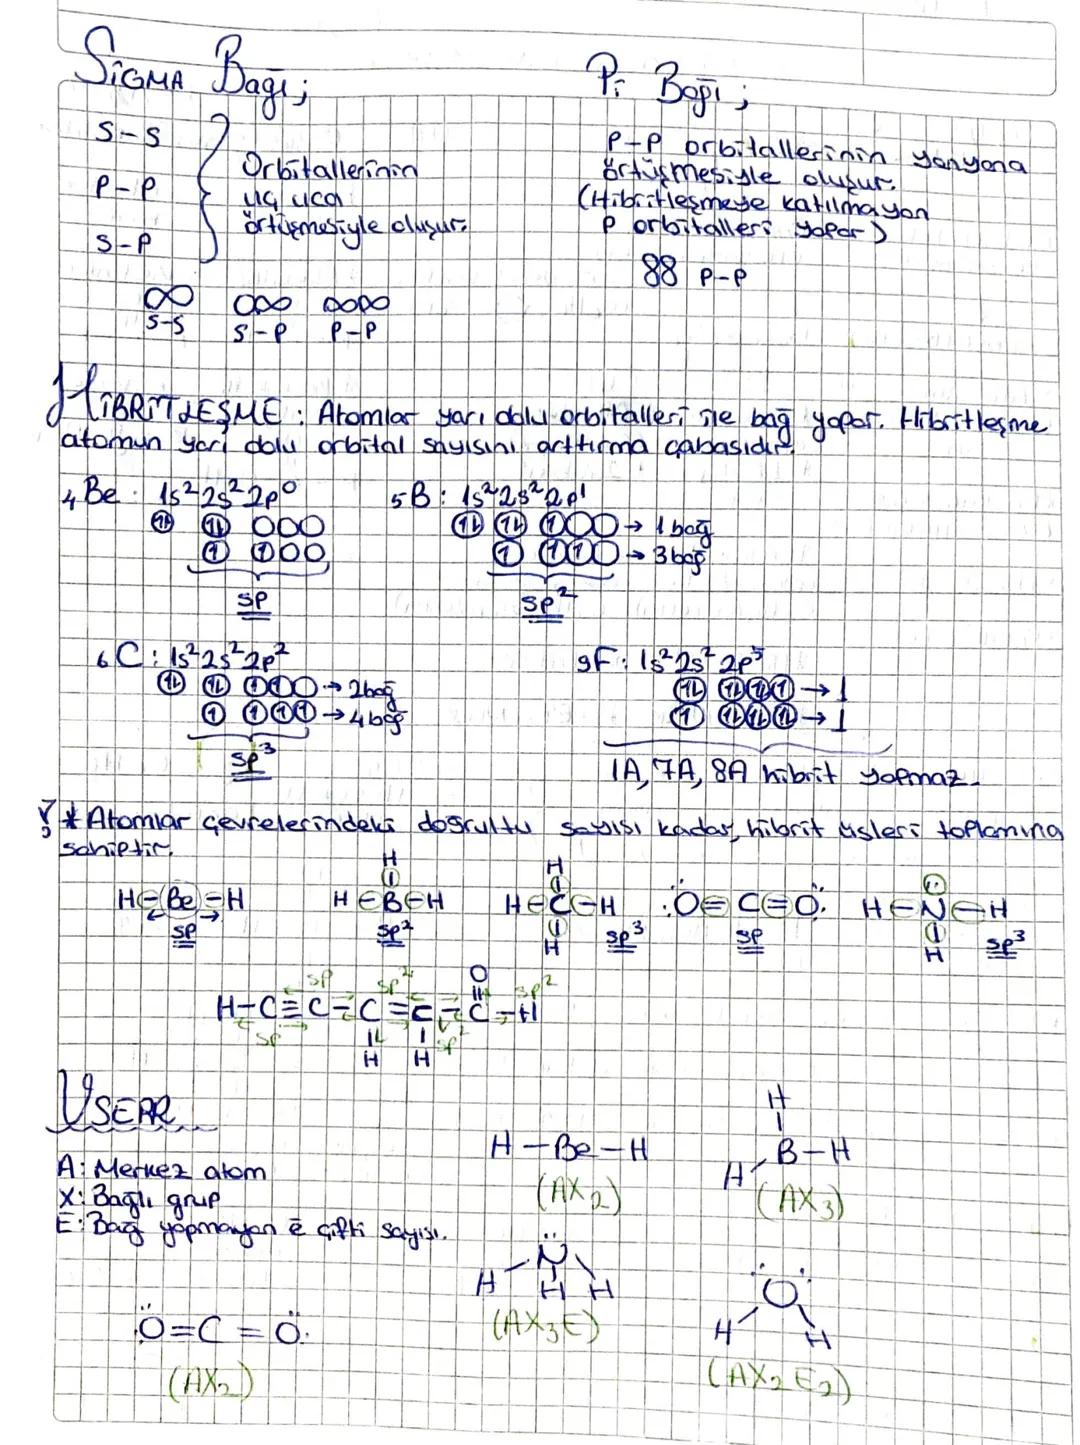 SİGMA Bağı;
Pi Bağı;
S-S
P-P
S-P
Orbitallerinin
uç uca
örtüşmesiyle oluşur.
P-P orbitallerinin yanyana
örtüşmesiyle oluşur.
(Hibritleşmeye katılmayan
P orbitalleri yapar)
88 P-P
S-S S-P P-P
HİBRİTLEŞME: Atomlar yarı dolu orbitalleri ile bağ yapar. Hibritleşme
atomun yarı dolu orbital sayısını arttırma çabasıdır.
₄Be: 1s² 2s² 2p⁰
sp
₅B: 1s² 2s² 2p¹
→ 1 bağ
→ 3 bağ
sp²
₆C: 1s² 2s² 2p²
→ 2 bağ
→ 4 bağ
sp³
₉F: 1s² 2s² 2p⁵
→ 1
→ 1
1A, 7A, 8A hibrit yapmaz.
* Atomlar çevrelerindeki doğrultu sayısı kadar, hibrit üsleri toplamına
sahiptir.
H H
H-Be-H H-B-H H-C-H :Ö=C=Ö: H-N-H
sp sp² H sp³ sp H sp³
sp sp² O sp²
H-C≡C-C=C-C-H
sp H H sp²
VSEPR
A: Merkez atom
X: Bağlı grup
E: Bağ yapmayan e⁻ çifti sayısı.
H-Be-H
(AX₂)
H
B-H
H
(AX₃)
N
H H H
(AX₃E)
O
H H
(AX₂E₂)
Ö=C=Ö:
(AX₂)